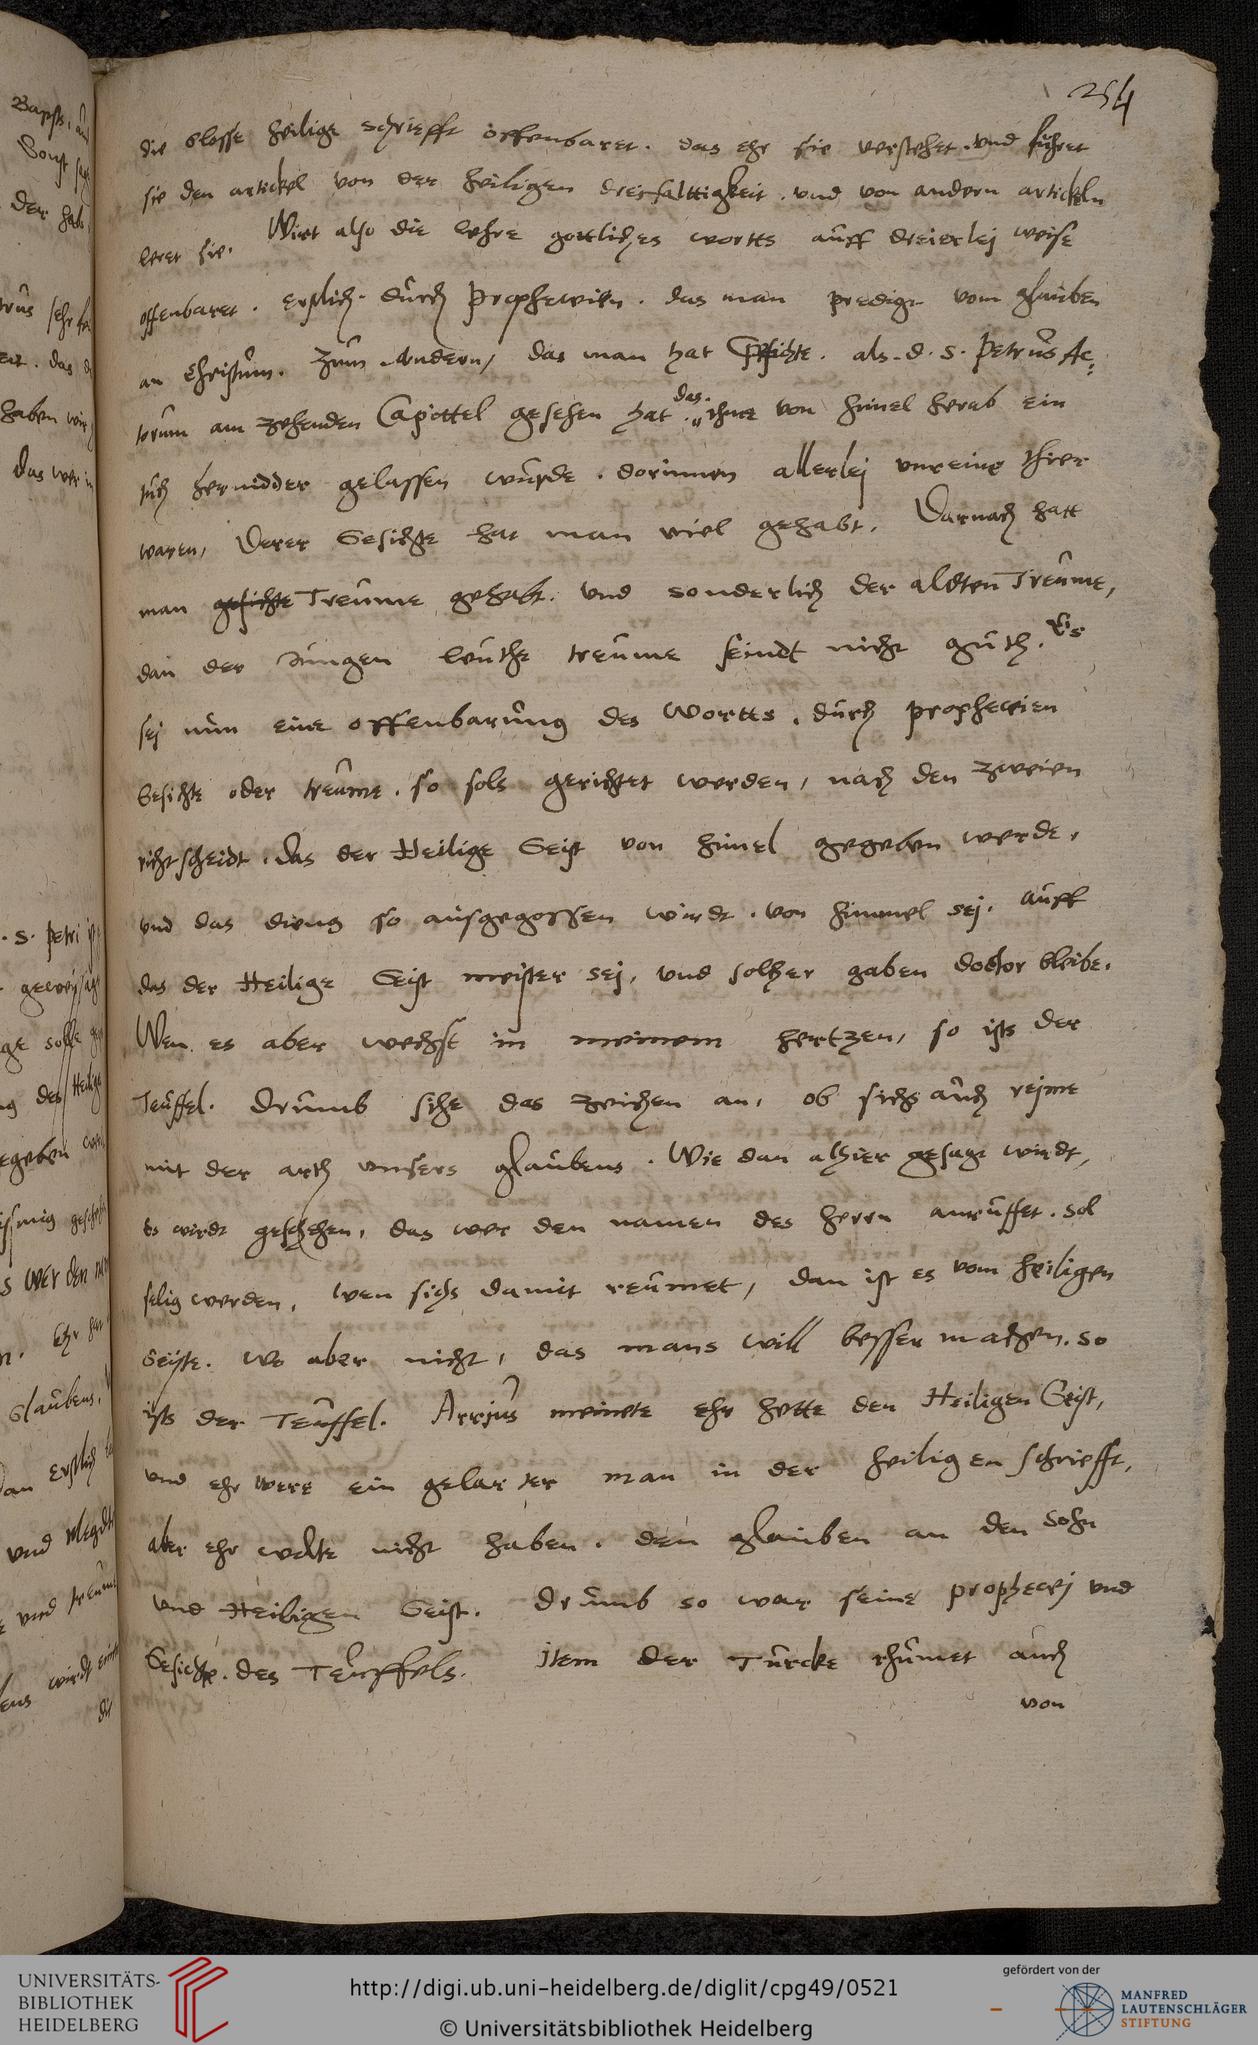 254
die blosse heilige schriefft offenbaret. das ehr sie verstehet. und fuhret
sie den artickel von der heiligen dreifalttigkeit. und von andern artickeln
leret sie. Wirt also die lehre gottliches wortts auff dreierlej weise
offenbaret. erstlich. durch propheceien. das man predigt vom glauben
an Christum. Zum Andern, das man hat Gesichte. als. d. S. Petrus Ac:
torum am zehenden Capittel gesehen hat das ihme von himel herab ein
tuch hernidder gelassen wurde. dorinnen allerlej unreine thier
waren, Derer Gesichte hat man viel gehabt. Darnach hatt
man gesichte Treume gehabt. und sonderlich der aldten Treume,
dan der Jungen leuthe treume seindt nicht guth. Es
sej nun eine offenbarung des Wortts. durch propheceien
Gesichte oder treume. so sols gerichtet werden, nach den zweien
richtscheidt. das der Heilige Geist von himel gegeben werde.
und das dieng so ausgegossen wirdt. von himmel sej. auff
das der Heilige Geist meister sej, und solcher gaben doctor bleibe.
Wen es aber wechst in meinem hertzen, so ists der
Teuffel. Drumb sihe das zeichen an, ob sichs auch rejme
mit der arth unsers glaubens. Wie dan alhier gesagt wirdt,
es wirdt geschehen, das wer den namen des herrn anruffet. sol
selig werden. wen sichs damit reumet, dan ist es vom heiligen
Geiste. Wo aber nicht, das mans will besser machen. so
ists der Teuffel. Arrius meinete ehr hette den Heiligen Geist,
und ehr were ein gelarter man in der heiligen schriefft,
aber ehr wolte nicht haben. den glauben an den Sohn
und Heiligen Geist. Drumb so war seine prophecej und
Gesichte. des Teuffels. Item der Turcke rhumet auch
von
UNIVERSITÄTS-
BIBLIOTHEK
HEIDELBERG
http://digi.ub.uni-heidelberg.de/diglit/cpg49/0521
© Universitätsbibliothek Heidelberg
gefördert von der
MANFRED
LAUTENSCHLÄGER
STIFTUNG